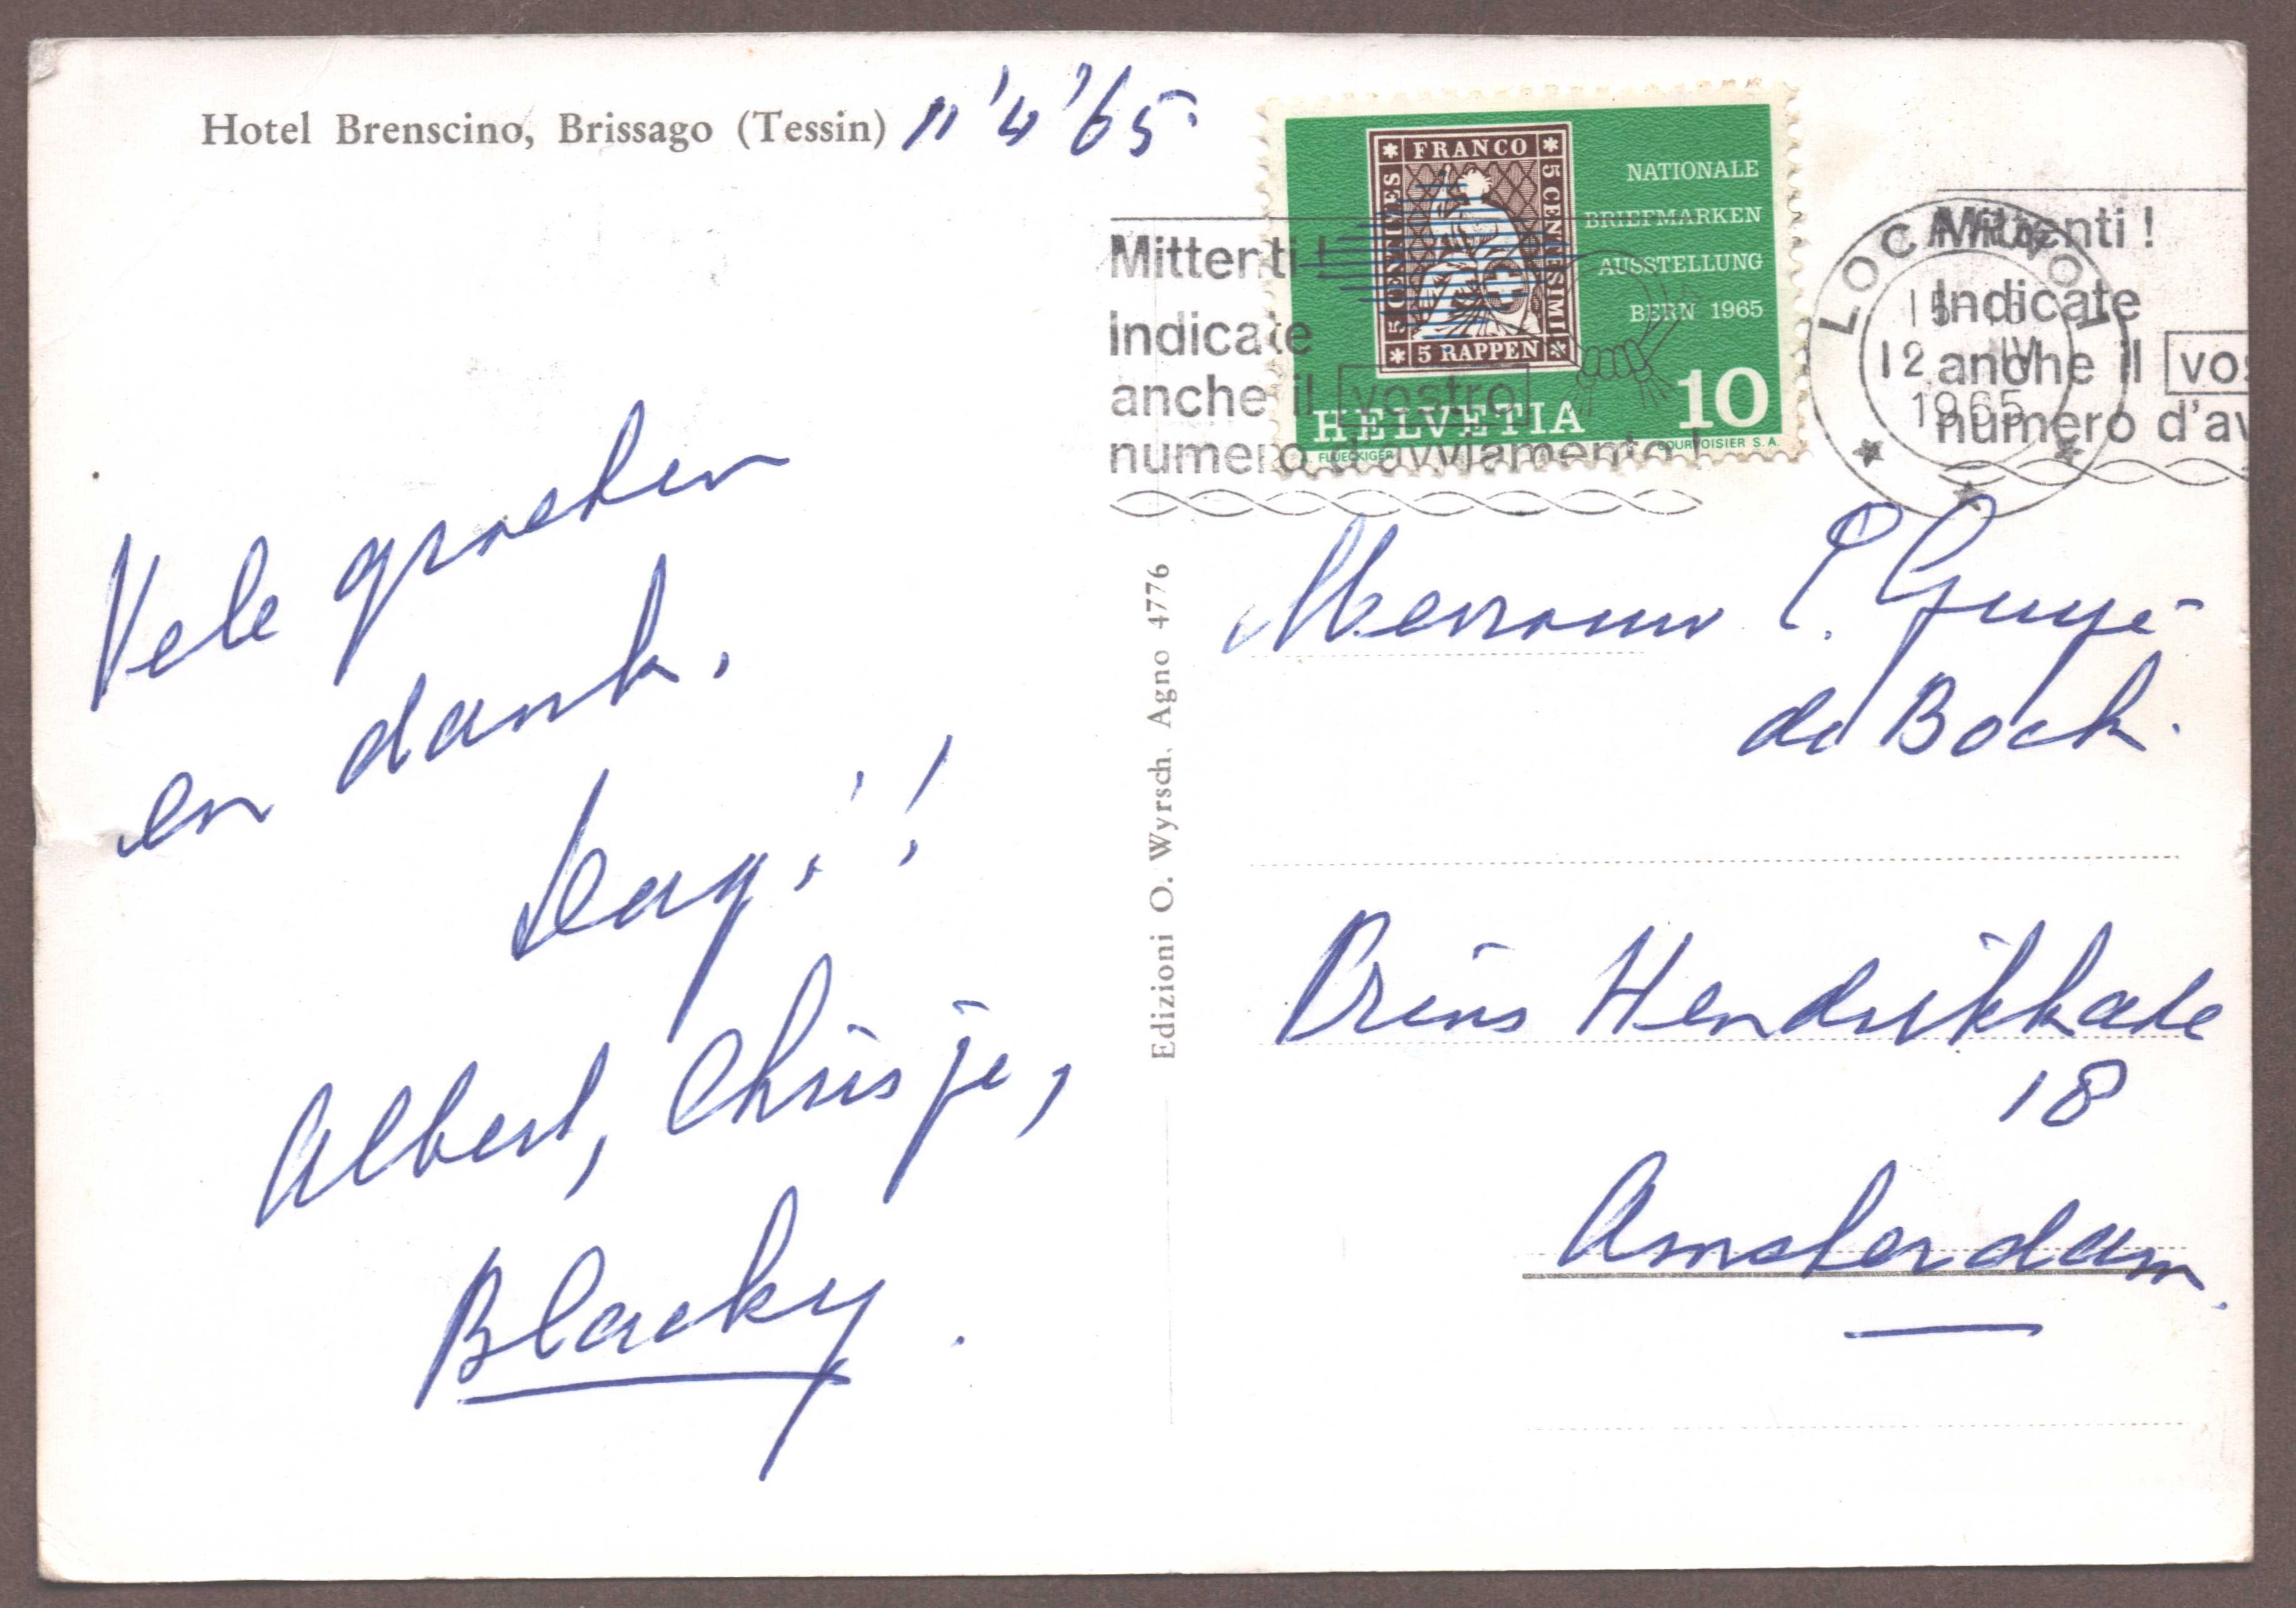 Hotel Brenscino, Brissago (Tessin) 11'4'65.
FRANCO
5 CENTIMES
5 CENTESIMI
5 RAPPEN
NATIONALE
BRIEFMARKEN
AUSSTELLUNG
BERN 1965
HELVETIA 10
FLUECKIGER COURVOISIER S.A.
Mittenti !
Indicate
anche il vostro
numero d'avviamento !
LOCARNO 1
12 IV
1965
Mittenti !
Indicate
anche il vos
numero d'av
Vele groeten
en dank.
Dag!!
Albert, Chrisje,
Blacky.
Edizioni O. Wyrsch, Agno 4776
Mevrouw E. Guyé-
de Bock.
Prins Hendrikkade
18
Amsterdam.